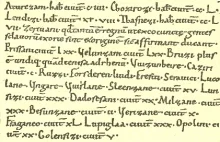 Aturezani. habent ciuitt̄ · c · iiii · Chozirozi. hab̄t ciuitt̄ · cc · l ·
Lendizi. hab̄t ciuitt̄ · xc · viii · Thafnezi. hab̄t ciuitt̄ · cc · l ·
vii · Zeriuani qd̄ tantū ē regnū ut ex eo cuncte gentes
sclauorū exorte sint & originē sic affirmant ducant
Prissani ciuitt̄ · lxx · Uelunzani. ciuitt̄ · lxx · Bruzi plus
ē undiq; quā de enisa ad rhenū · Uuizunbeire · Caziri
ciuitt̄ · c · Ruzzi · Forsderen liudi · Fresiti · Serauici · Luco
lane · Ungare · Uuislane · Sleenzane ciuitt̄ · xv ·
ciuitt̄ · xxx · Dadosesani · ciuitt̄ · xx · Milzane · ciuitt̄ ·
xxx · Besunzane · ciuitt̄ · ii · Uerizane · ciuitt̄ · x ·
Fraganeo · ciuitt̄ · xl · Lupiglaa · ciuitt̄ · xxx · Opolini · ci
uitt̄ · xx · Golensizi · ciuitt̄ · v ·